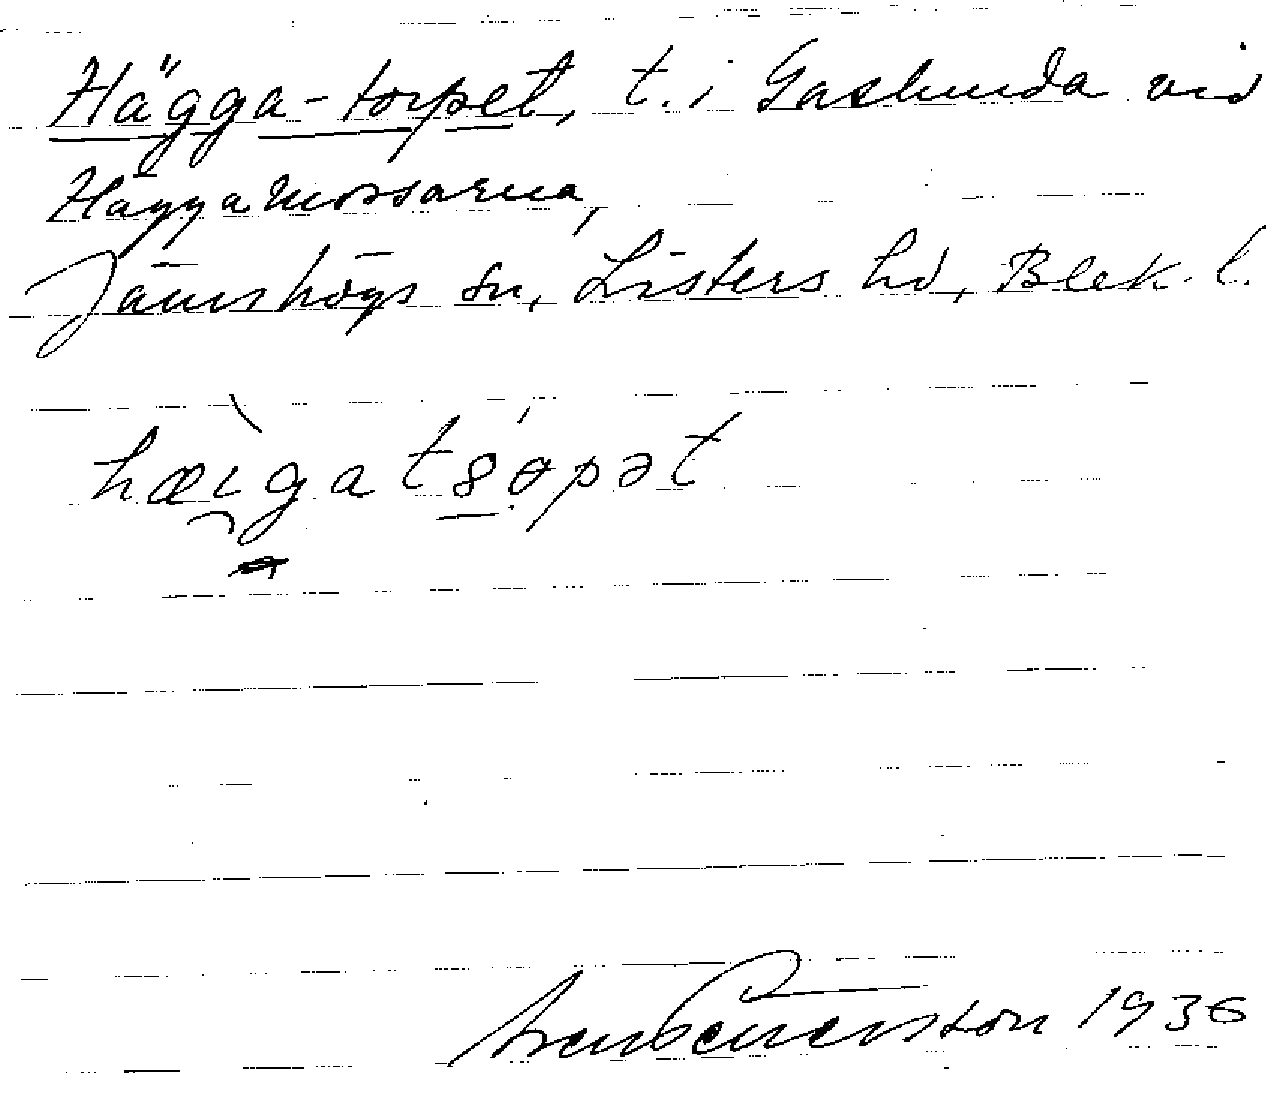 Hägga-torpet, t. i Gaslunda vid
Häggamossarna,
Jämshögs sn, Listers hd, Blek. l.
hæɩgatsopət
Sven Benson 1936